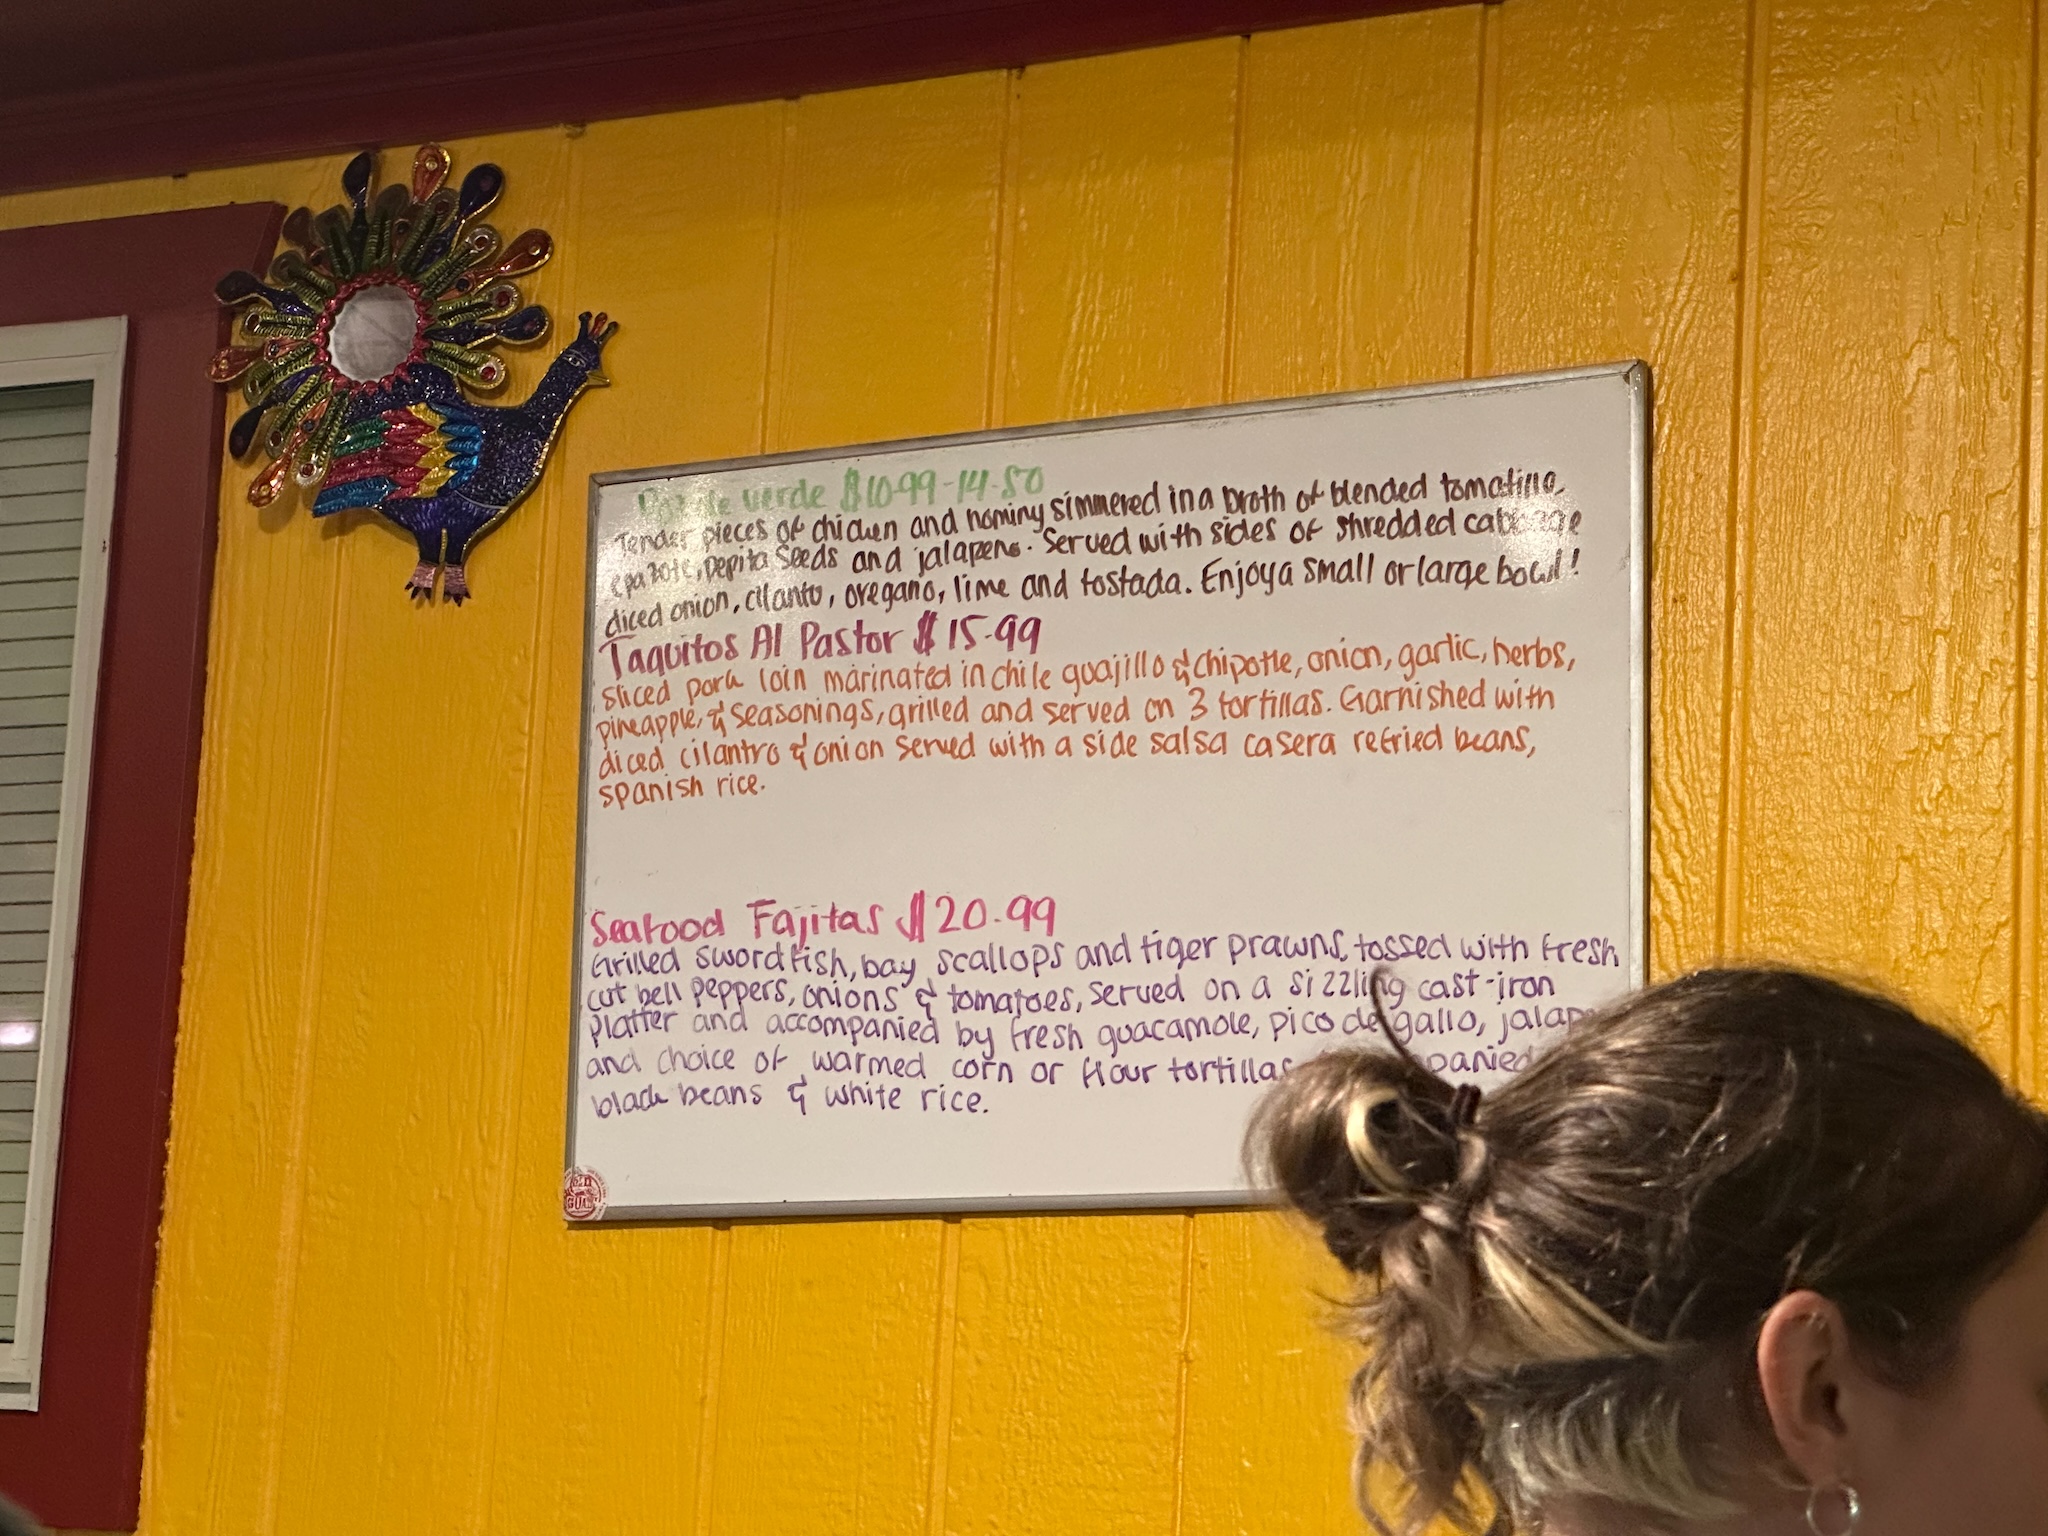 Pozole verde $10.99-14.50
Tender pieces of chicken and hominy simmered in a broth of blended tomatillo,
epazote, pepita seeds and jalapeno. Served with sides of shredded cabbage
diced onion, cilantro, oregano, lime and tostada. Enjoy a small or large bowl!
Taquitos Al Pastor $15.99
sliced pork loin marinated in chile guajillo & chipotle, onion, garlic, herbs,
pineapple, & seasonings, grilled and served on 3 tortillas. Garnished with
diced cilantro & onion served with a side salsa casera refried beans,
spanish rice.
Seafood Fajitas $20.99
Grilled swordfish, bay scallops and tiger prawns, tossed with fresh
cut bell peppers, onions & tomatoes, served on a sizzling cast-iron
platter and accompanied by fresh guacamole, pico de gallo,
and choice of warmed corn or flour tortillas
black beans & white rice.